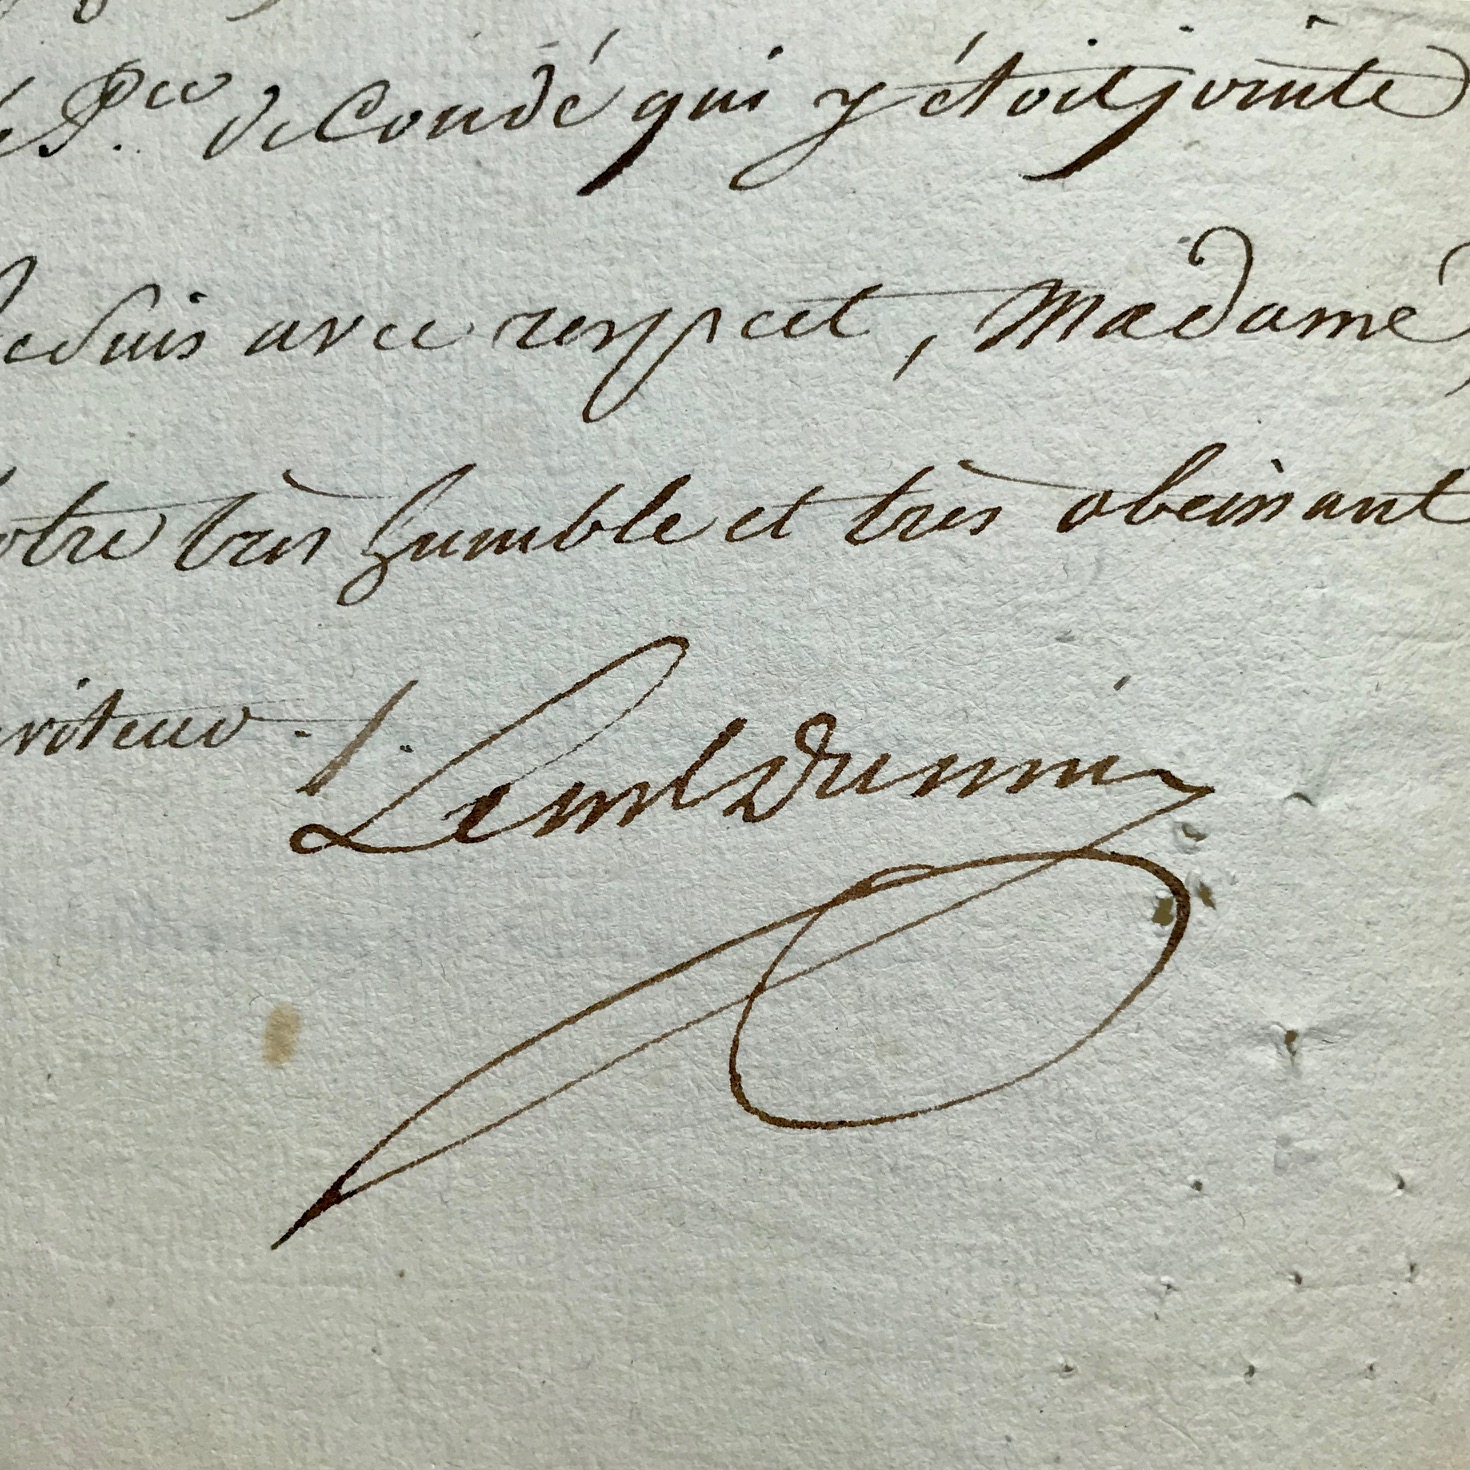 P.ce de Condé qui y étoit jointe
Je suis avec respect, Madame,
votre très humble et très obeissant
serviteur ./.
Le ml Dumuy